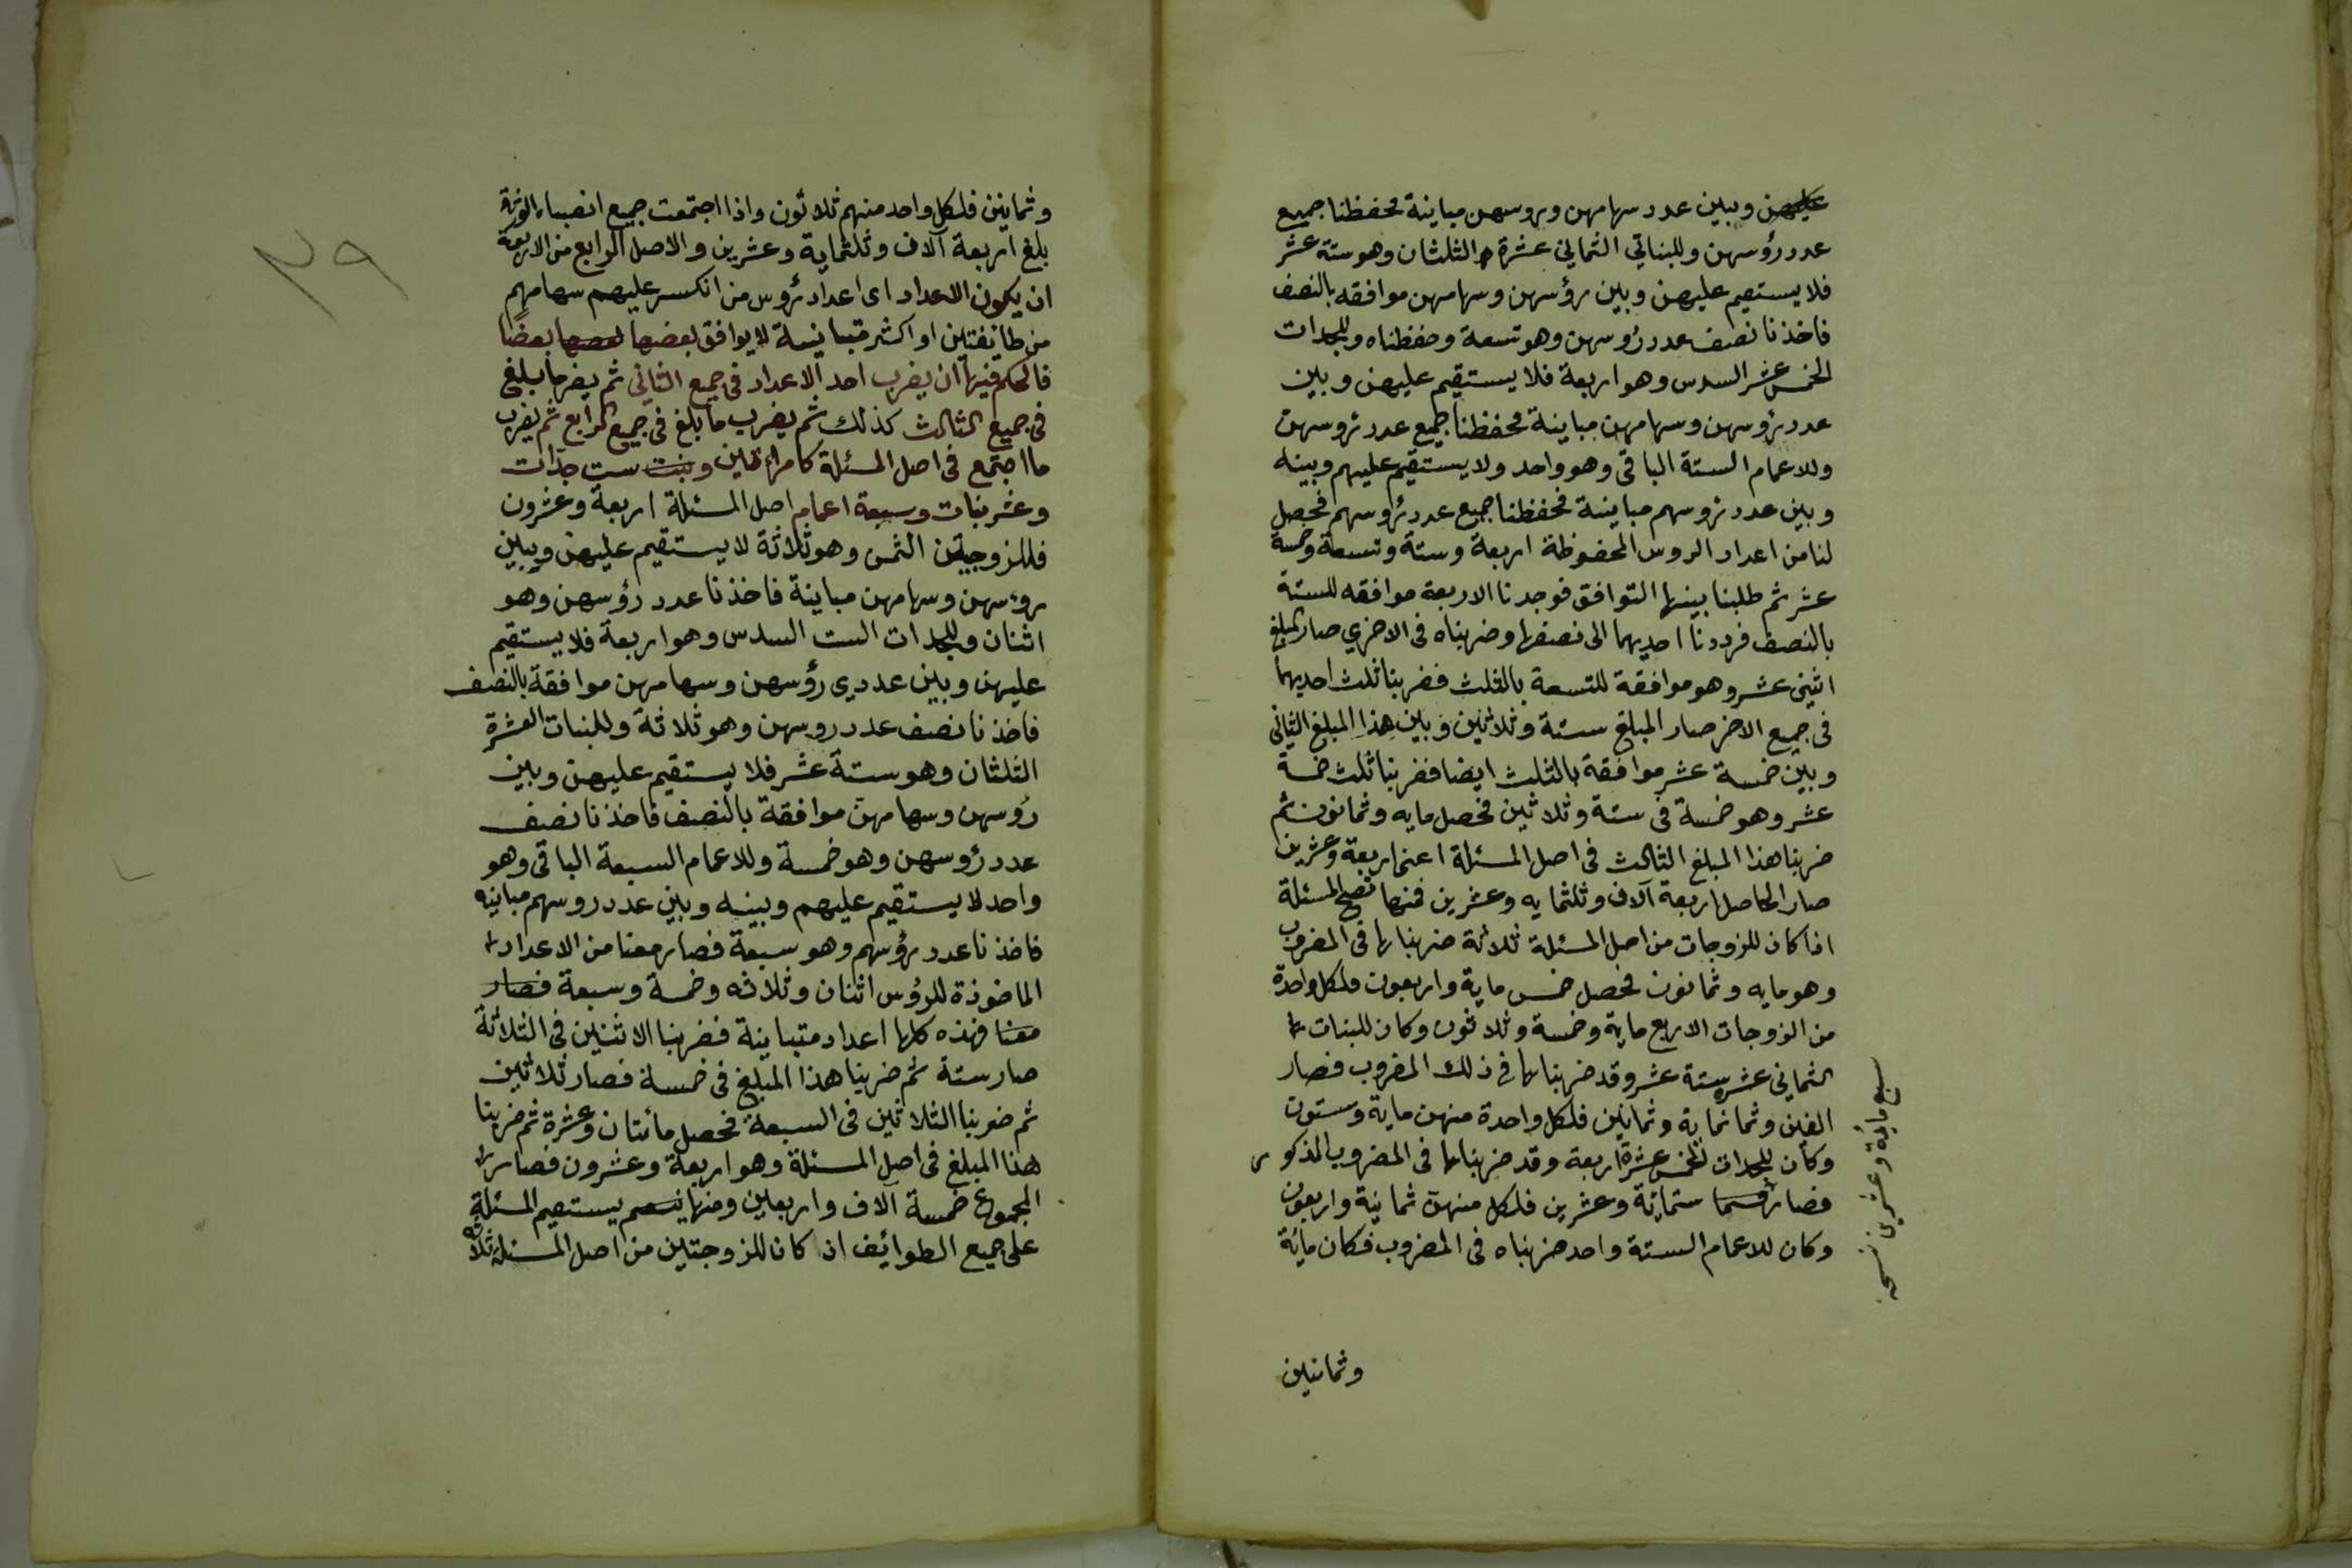 عليهن وبين عدد سهامهن وروسهن مباينة فحفظنا جميع
عدد رؤسهن وللبناتي الثماني عشرة الثلثان وهو ستة عشر
فلا يستقيم عليهن وبين رؤسهن وسهامهن موافقه بالنصف
فاخذنا نصف عدد رؤسهن وهو تسعة وحفظناه وللجدات
الخمس عشر السدس وهو اربعة فلا يستقيم عليهن وبين
عدد رؤسهن وسهامهن مباينة فحفظنا جميع عدد رؤسهن
وللاعمام الستة الباقى وهو واحد ولا يستقيم عليهم وبينه
وبين عدد رؤسهم مباينة فحفظنا جميع عدد رؤسهم فحصل
لنا من اعداد الروس المحفوظة اربعة وستة وتسعة وخمسة
عشر ثم طلبنا بينها التوافق فوجدنا الاربعة موافقه للستة
بالنصف فرددنا احديهما الى نصفها وضربناه فى الاخري صار المبلغ
اثنى عشر وهو موافقة للتسعة بالثلث فضربنا ثلث احديهما
فى جميع الاخر صار المبلغ ستة وثلاثين وبين هذا المبلغ الثانى
وبين خمسة عشر موافقة بالثلث ايضا فضربنا ثلث خمسة
عشر وهو خمسة فى ستة وثلاثين فحصل مايه وثمانون ثم
ضربنا هذا المبلغ الثالث فى اصل المسئلة اعنى اربعة وعشرين
صار الحاصل اربعة آلاف وثلثمايه وعشرين فمنها تصح المسئلة
اذا كان للزوجات من اصل المسئلة ثلاثة ضربناها فى المضروب
وهو مايه وثمانون فحصل خمس ماية واربعون فلكل واحدة
من الزوجات الاربع ماية وخمسة وثلاثون وكان للبنات
الثماني عشر ستة عشر وقد ضربناها فى ذلك المضروب فصار
الفين وثمانماية وثمانين فلكل واحدة منهن ماية وستون
وكان للجدات الخمس عشرة اربعة وقد ضربناها فى المضروب المذكور
فصار ستمائة وعشرين فلكل منهن ثمانية واربعون
وكان للاعمام الستة واحد ضربناه فى المضروب فكان مائة
سبع مائة وعشرين نسخه
وثمانين
٢٩
وثمانين فلكل واحد منهم ثلاثون واذا اجتمعت جميع انصباء الورثة
بلغ اربعة آلاف وثلثماية وعشرين والاصل الرابع من الاربعة
ان يكون الاعداد اى اعداد رؤس من انكسر عليهم سهامهم
من طائفتين او اكثر متباينة لا يوافق بعضها بعضا
فالحكم فيها ان يضرب احد الاعداد فى جميع الثاني ثم يضرب ما بلغ
فى جميع الثالث كذلك ثم يضرب ما بلغ فى جميع الرابع ثم يضرب
ما اجتمع فى اصل المسئلة كامرأتين وبنت ست جدات
وعشر بنات وسبعة اعمام اصل المسئلة اربعة وعشرون
فللزوجتين الثمن وهو ثلاثة لا يستقيم عليهن وبين
رؤسهن وسهامهن مباينة فاخذنا عدد رؤسهن وهو
اثنان وللجدات الست السدس وهو اربعة فلا يستقيم
عليهن وبين عددي رؤسهن وسهامهن موافقة بالنصف
فاخذنا نصف عدد روسهن وهو ثلاثة وللبنات العشرة
الثلثان وهو ستة عشر فلا يستقيم عليهن وبين
رؤسهن وسهامهن موافقة بالنصف فاخذنا نصف
عدد رؤسهن وهو خمسة وللاعمام السبعة الباقى وهو
واحد لا يستقيم عليهم وبينه وبين عدد روسهم مباينه
فاخذنا عدد رؤسهم وهو سبعة فصار معنا من الاعداد
الماخوذة للرؤس اثنان وثلاثه وخمسة وسبعة فصار
معنا فهذه كلها اعداد متباينة فضربنا الاثنين فى الثلاثة
صار ستة ثم ضربنا هذا المبلغ فى خمسة فصار ثلاثين
ثم ضربنا الثلاثين فى السبعة فحصل مائتان وعشرة ثم ضربنا
هذا المبلغ فى اصل المسئلة وهو اربعة وعشرون فصار
المجموع خمسة آلاف واربعين ومنها يستقيم المسئلة
على جميع الطوائف اذ كان للزوجتين من اصل المسئلة ثلاثة